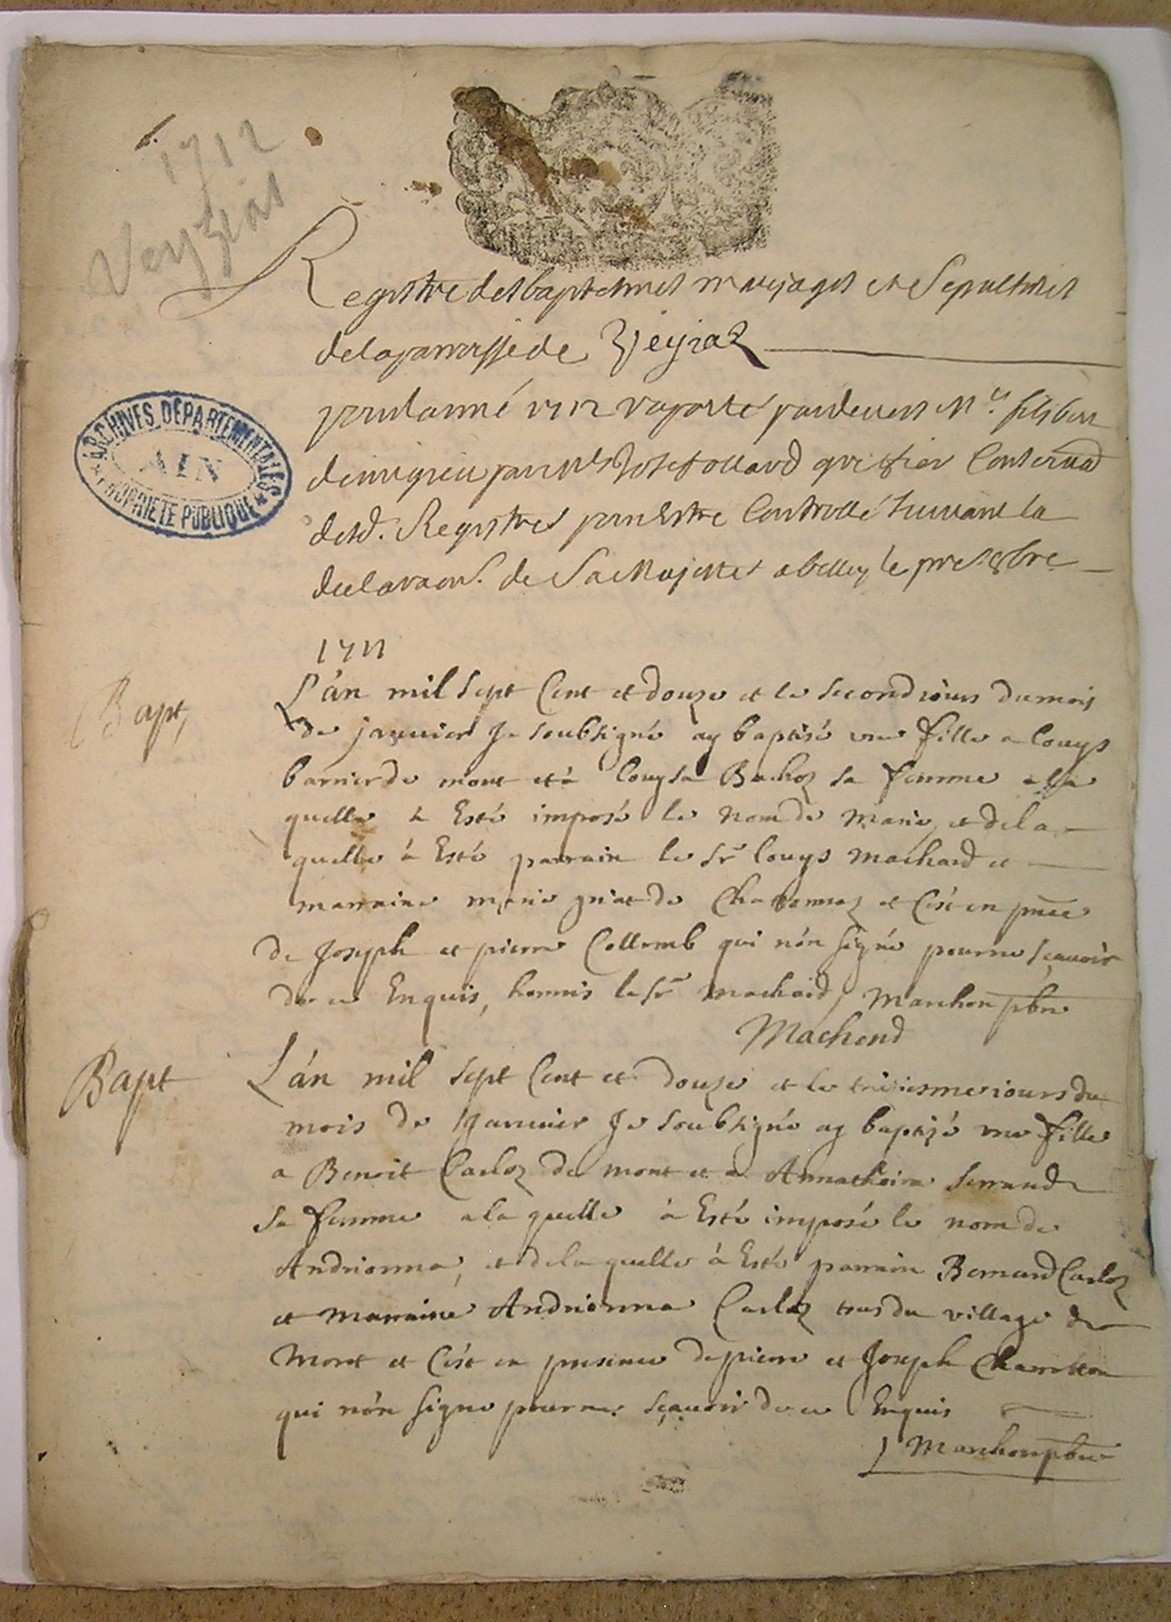 1712
Veyziat
Registre des baptesmes mariages et Sepultures
de la parroisse de Veyziaz
pour lannée 1712 raporté pardevers Mr. filibert
demigieu par Me Jose follard greffier Conservat
desd. Registres pour Estre Controllé suivant la
declaraon. de Sa Majesté a belley le pre. 8bre
1711
ARCHIVES DÉPARTEMENTALES
AIN
PROPRIÉTÉ PUBLIQUE
Bapt,
L'án mil sept Cent et douze et le second iours du mois
de janvier Je soubsigné ay baptisé une fille a louys
barnier de mont et à louysa Bachoz sa femme a la
quelle à Esté imposé le nom de Marie, et de la
quelle à Esté parrain le Sr louys machard et
marraine marie de et C'ést en pnce
de Joseph et pierre Collomb qui nón signé pour ne sçavoir
de ce Enquis, hormis le Sr machard, Marchon pbre
Machard
Bapt
L'án mil sept Cent et douze et le troisiesme iours du
mois de Janvier Je soubsigné ay baptizé une fille
a Benoit Carloz de mont et a Annathoina Serrand
sa femme a la quelle à Esté imposé le nom de
Andrionna, et de la quelle à Esté parrain Bernard Carloz
et Marraine Andrionna Carloz tous du village de
Mont et C'ést en presence de pierre et Joseph
qui nón signe pour ne sçavoir de ce Enquis
Marchon pbre